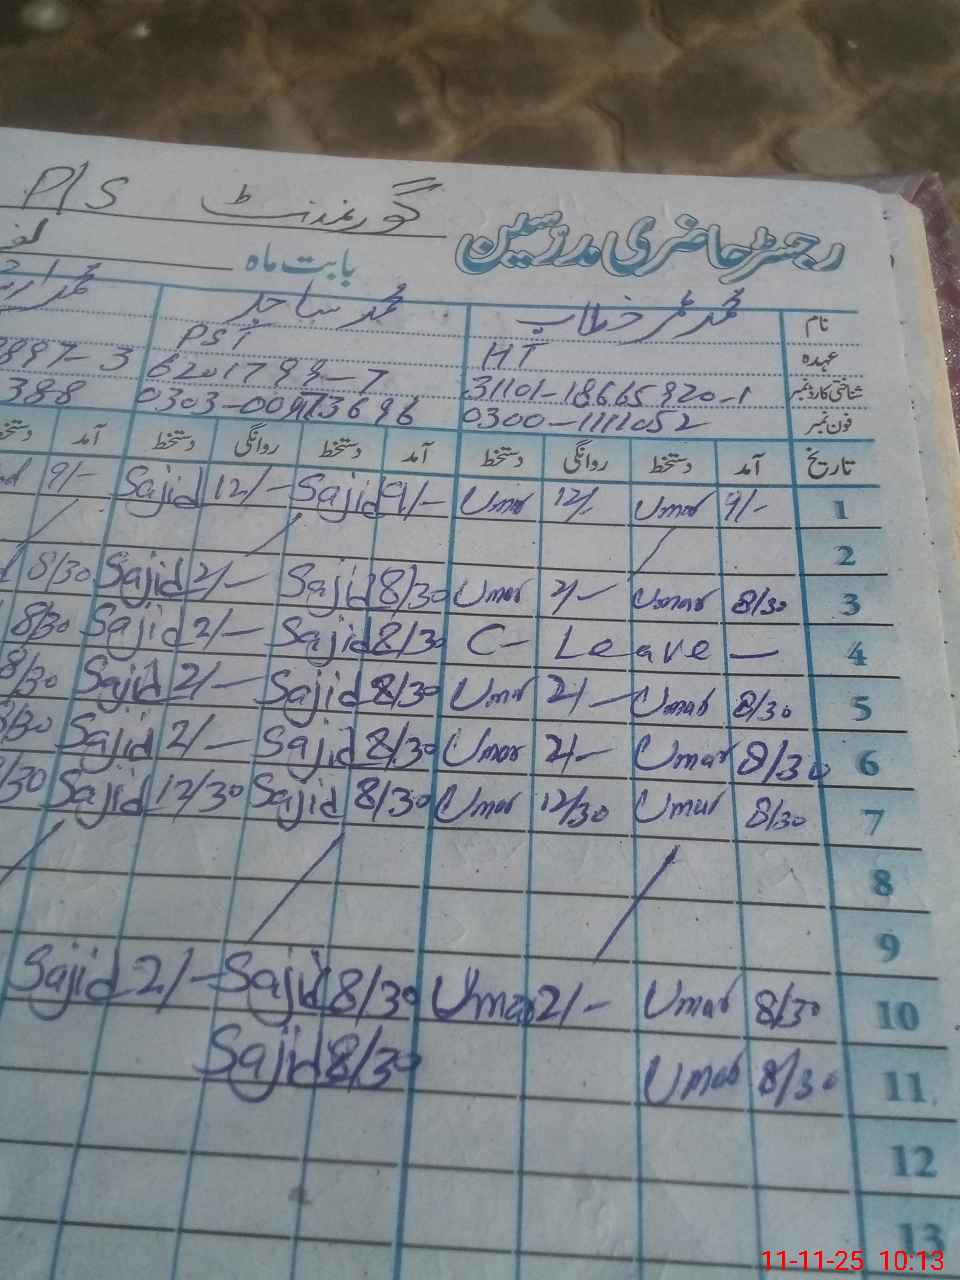 گورنمنٹ P/S
رجسٹر حاضری مدرسین
بابت ماہ
نام محمد عمر خطاب محمد ساجد
عہدہ HT PST
شناختی کارڈ نمبر 31101-18665920-1 6201799-7 3
فون نمبر 0300-1111052 388
تاریخ آمد دستخط روانگی دستخط آمد دستخط روانگی دستخط آمد دستخط
1 9/- Umar 12/- Umar 9/- Sajid 12/- Sajid 9/-
2
3 8/30 Umar 2/- Umar 8/30 Sajid 2/- Sajid 8/30
4 C- Leave - 8/30 Sajid 2/- Sajid 8/30
5 8/30 Umar 2/- Umar 8/30 Sajid 2/- Sajid 8/30
6 8/30 Umar 2/- Umar 8/30 Sajid 2/- Sajid 8/30
7 8/30 Umar 12/30 Umar 8/30 Sajid 12/30 Sajid 8/30
8
9
10 8/30 Umar 2/- Umar 8/30 Sajid 2/- Sajid
11 8/30 Umar 8/30 Sajid
12
13
11-11-25 10:13